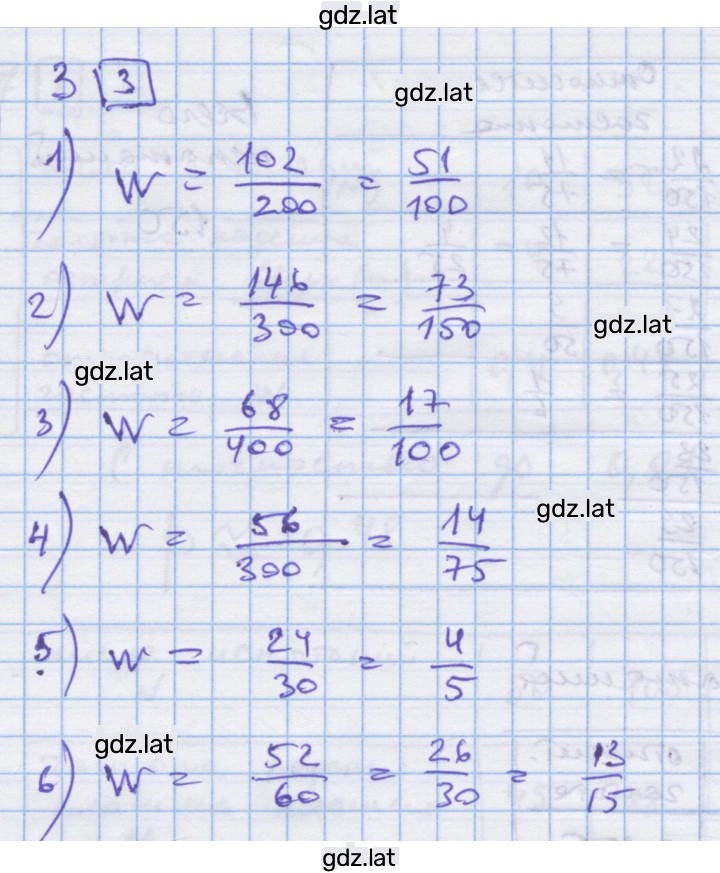 gdz.lat
3 3
gdz.lat
1) W = 102/200 = 51/100
2) W = 146/300 = 73/150
gdz.lat
gdz.lat
3) W = 68/400 = 17/100
gdz.lat
4) W = 56/300 = 14/75
5) W = 24/30 = 4/5
gdz.lat
6) W = 52/60 = 26/30 = 13/15
gdz.lat